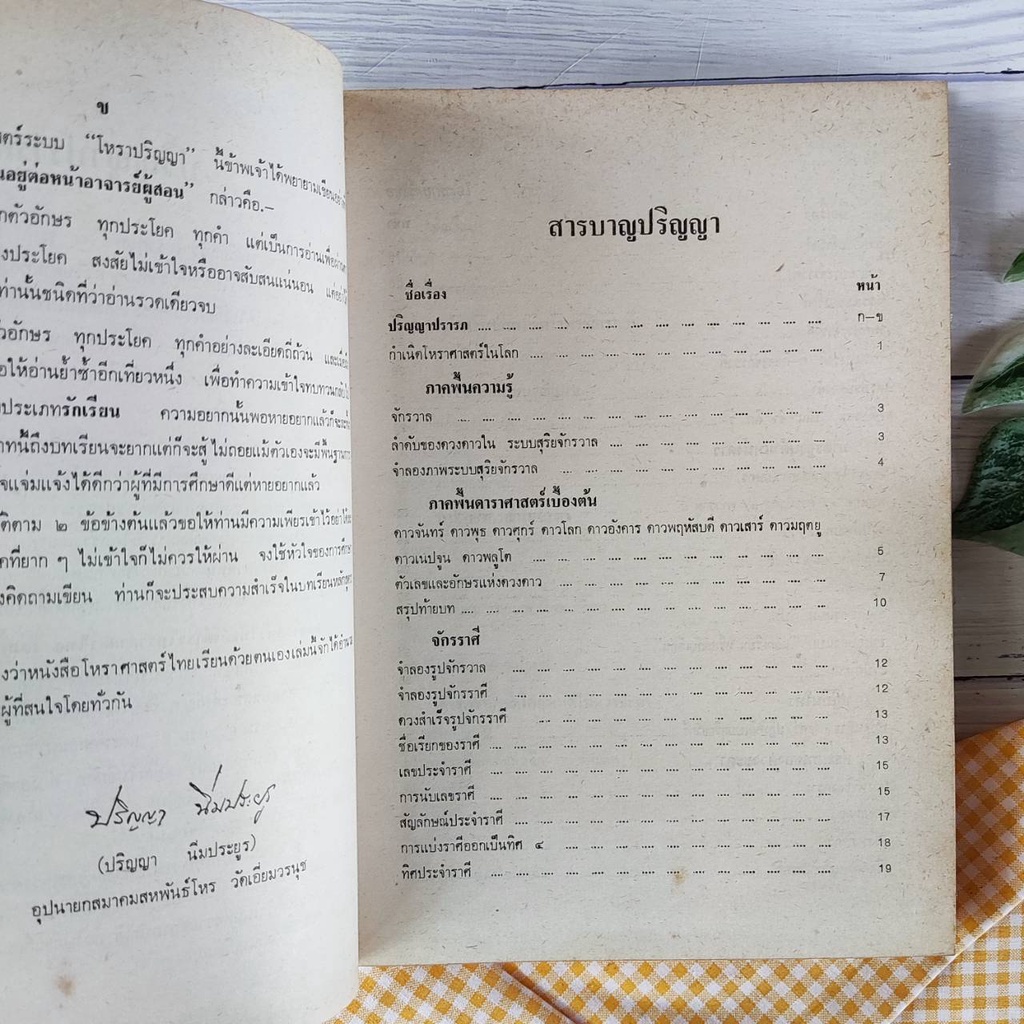 ข
ตร์ระบบ “โหราปริญญา” นี้ข้าพเจ้าได้พยายามเขียน
นอยู่ต่อหน้าอาจารย์ผู้สอน” กล่าวคือ.–
กตัวอักษร ทุกประโยค ทุกคำ แต่เป็นการอ่านเพื่อ
งประโยค สงสัยไม่เข้าใจหรืออาจสับสนแน่นอน
ท่านั้นชนิดที่ว่าอ่านรวดเดียวจบ
วอักษร ทุกประโยค ทุกคำอย่างละเอียดถี่ถ้วน
อให้อ่านย้ำซ้ำอีกเที่ยวหนึ่ง เพื่อทำความเข้าใจทบทวน
ประเภทรักเรียน ความอยากนั้นพอหายอยากแล้วก็
าทนี้ถึงบทเรียนจะยากแต่ก็จะสู้ ไม่ถอยแม้ตัวเองจะมีพื้นฐาน
จแจ่มแจ้งได้ดีกว่าผู้ที่มีการศึกษาดีแต่หายอยากแล้ว
ติตาม ๒ ข้อข้างต้นแล้วขอให้ท่านมีความเพียรเข้าไว้อย่า
คที่ยาก ๆ ไม่เข้าใจก็ไม่ควรให้ผ่าน จงใช้หัวใจของการศึกษา
งคิดถามเขียน ท่านก็จะประสบความสำเร็จในบทเรียน
งว่าหนังสือโหราศาสตร์ไทยเรียนด้วยตนเองเล่มนี้จักได้
ผู้ที่สนใจโดยทั่วกัน
ปริญญา นิ่มประยูร
(ปริญญา นิ่มประยูร)
อุปนายกสมาคมสหพันธ์โหร วัดเอี่ยมวรนุช
สารบาญปริญญา
ชื่อเรื่อง หน้า
ปริญญาปรารภ .... .... .... .... .... .... .... .... .... .... .... .... .... ก–ข
กำเนิดโหราศาสตร์ในโลก .... .... .... .... .... .... .... .... .... .... .... 1
ภาคพื้นความรู้
จักรวาล .... .... .... .... .... .... .... .... .... .... .... .... .... .... 3
ลำดับของดวงดาวใน ระบบสุริยจักรวาล .... .... .... .... .... .... .... .... 3
จำลองภาพระบบสุริยจักรวาล .... .... .... .... .... .... .... .... .... .... 4
ภาคพื้นดาราศาสตร์เบื้องต้น
ดาวจันทร์ ดาวพุธ ดาวศุกร์ ดาวโลก ดาวอังคาร ดาวพฤหัสบดี ดาวเสาร์ ดาวมฤตยู
ดาวเนปจูน ดาวพลูโต .... .... .... .... .... .... .... .... .... .... .... 5
ตัวเลขและอักษรแห่งดวงดาว .... .... .... .... .... .... .... .... .... .... 7
สรุปท้ายบท .... .... .... .... .... .... .... .... .... .... .... .... .... 10
จักรราศี
จำลองรูปจักรวาล .... .... .... .... .... .... .... .... .... .... .... .... 12
จำลองรูปจักรราศี .... .... .... .... .... .... .... .... .... .... .... 12
ดวงสำเร็จรูปจักรราศี .... .... .... .... .... .... .... .... .... .... 13
ชื่อเรียกของราศี .... .... .... .... .... .... .... .... .... .... .... .... 13
เลขประจำราศี .... .... .... .... .... .... .... .... .... .... .... .... 15
การนับเลขราศี .... .... .... .... .... .... .... .... .... .... .... .... 15
สัญลักษณ์ประจำราศี .... .... .... .... .... .... .... .... .... .... .... 17
การแบ่งราศีออกเป็นทิศ ๔ .... .... .... .... .... .... .... .... .... .... 18
ทิศประจำราศี .... .... .... .... .... .... .... .... .... .... .... .... 19